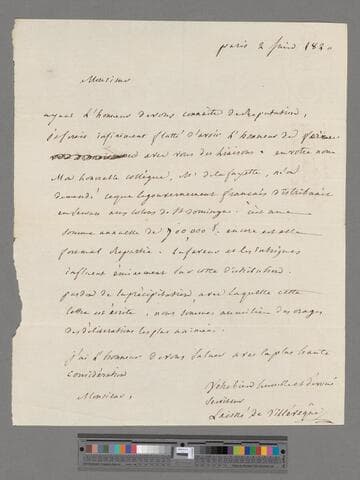 paris 2 juin 1820
Monsieur
ayant l'honneur de vous connaitre de Reputation,
je serois infiniment flatté d'avoir l'honneur de
avec vous des liaisons. en votre nom
Mon honorable collègue, Mr. de lafayette, m'a
demandé ce que le gouvernement français distribuait
en secours aux colons de St Domingue. c'est une
somme annuelle de 900 000 f. encore est elle
fort mal Repartie. la faveur et les intrigues
influent éminement sur cette distribution.
pardon de la précipitation avec laquelle cette
lettre est écrite. nous sommes au milieu des orages
des délibérations les plus animées.
j'ai l'honneur de vous saluer avec la plus haute
considération
Monsieur,
Votre bien humble et dévoué
serviteur
Laisné de Villevêque